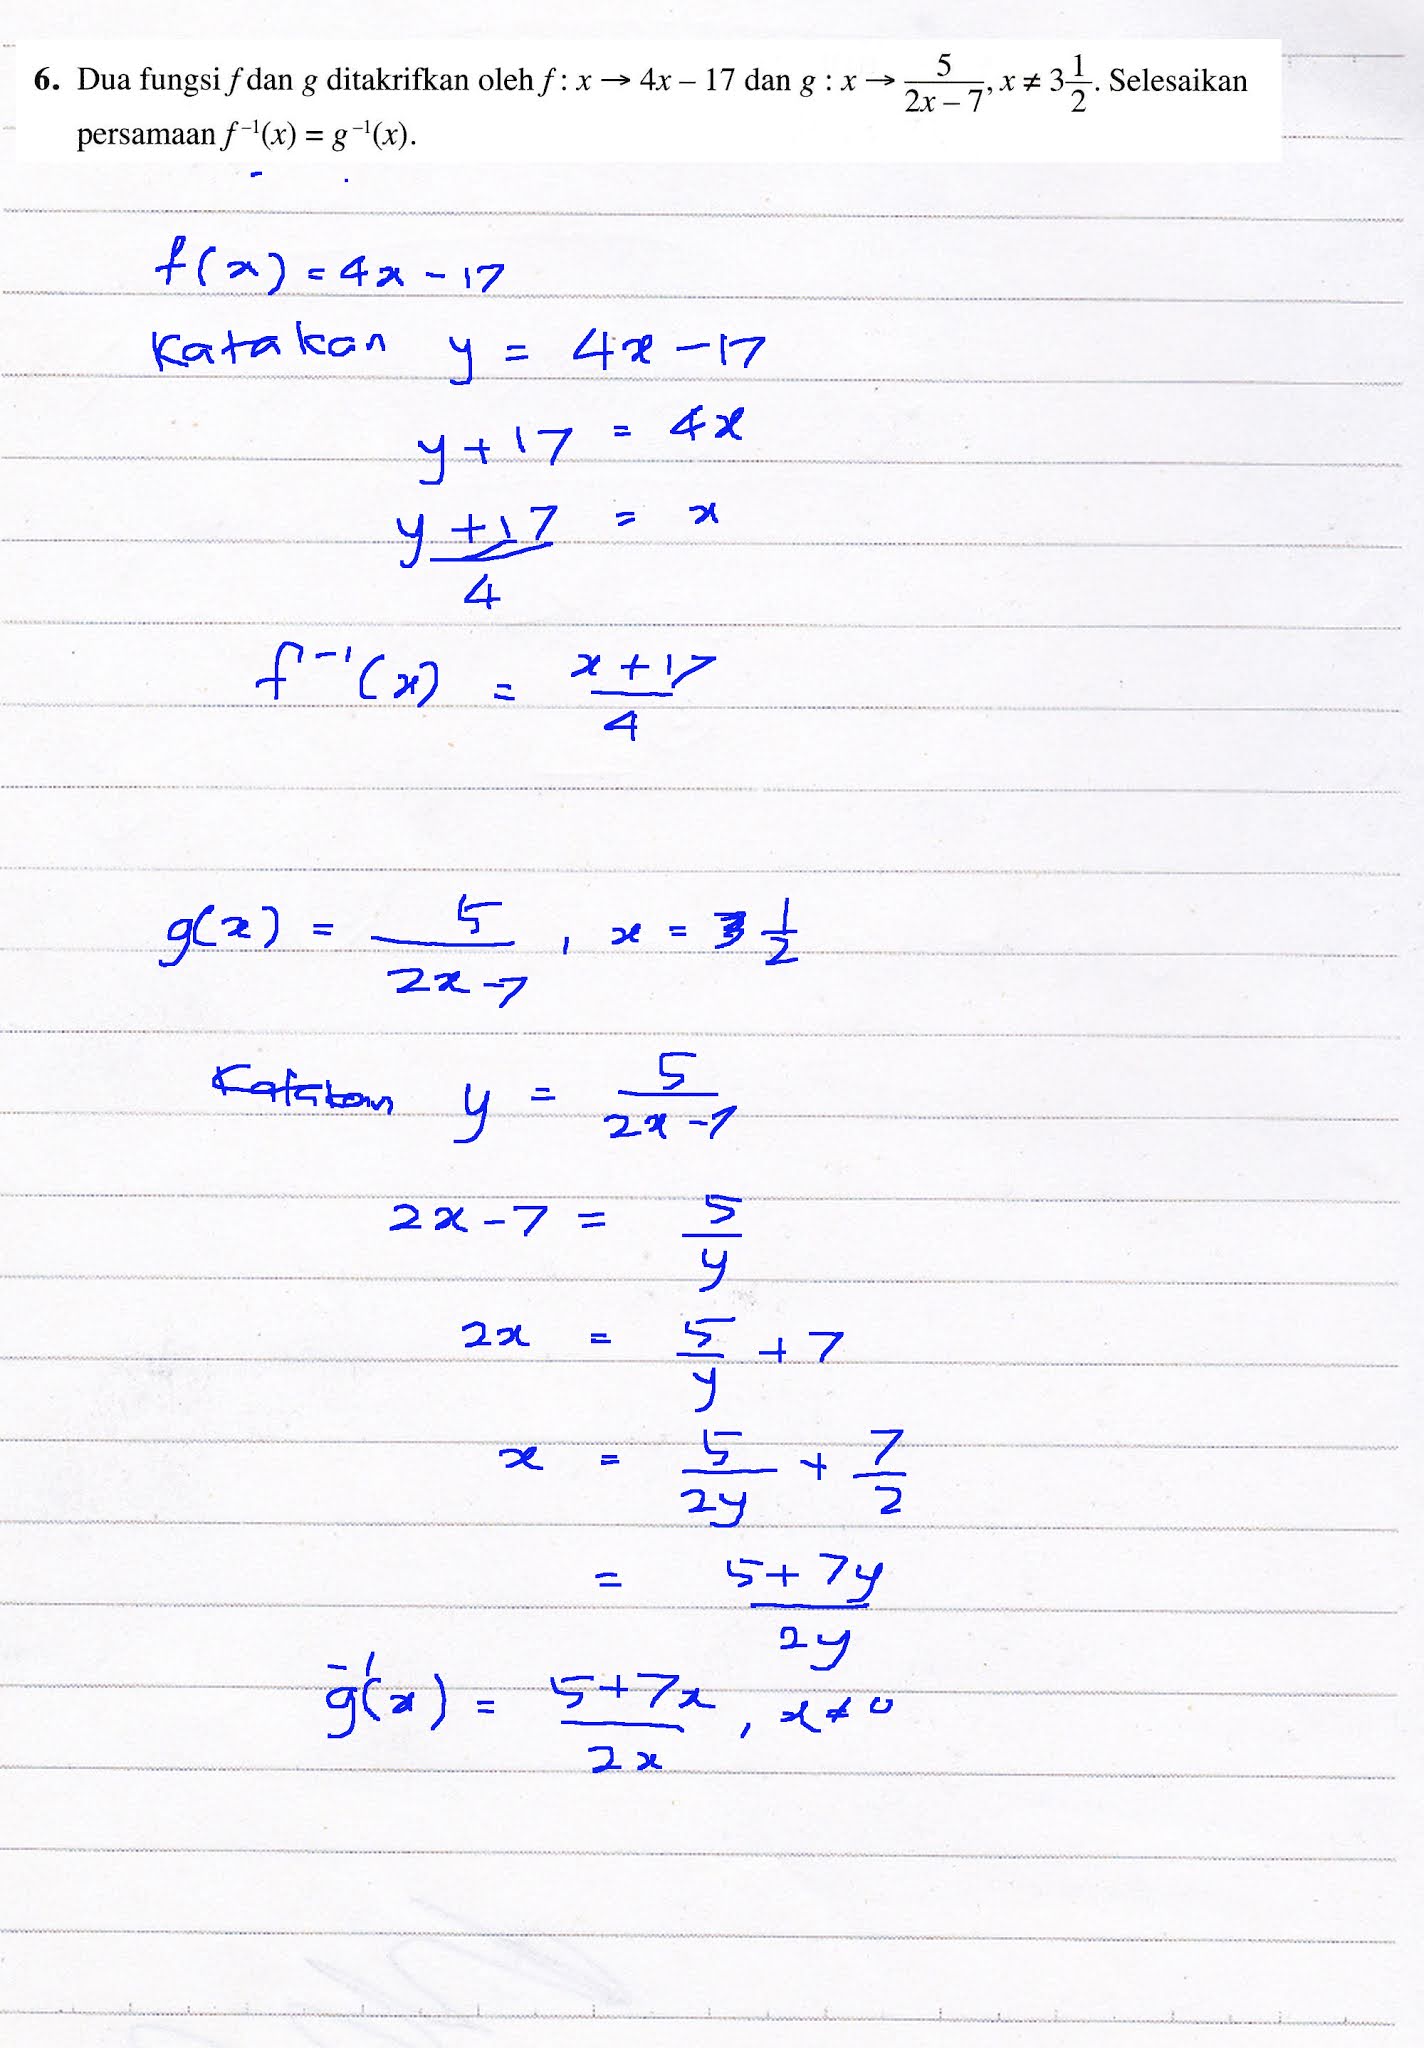 6. Dua fungsi f dan g ditakrifkan oleh f : x → 4x – 17 dan g : x → 5/(2x – 7), x ≠ 3 1/2. Selesaikan
persamaan f⁻¹(x) = g⁻¹(x).
f(x) = 4x - 17
Katakan y = 4x - 17
y + 17 = 4x
(y + 17)/4 = x
f⁻¹(x) = (x + 17)/4
g(x) = 5/(2x - 7), x = 3 1/2
Katakan y = 5/(2x - 7)
2x - 7 = 5/y
2x = 5/y + 7
x = 5/2y + 7/2
= (5 + 7y)/2y
g⁻¹(x) = (5 + 7x)/2x, x ≠ 0